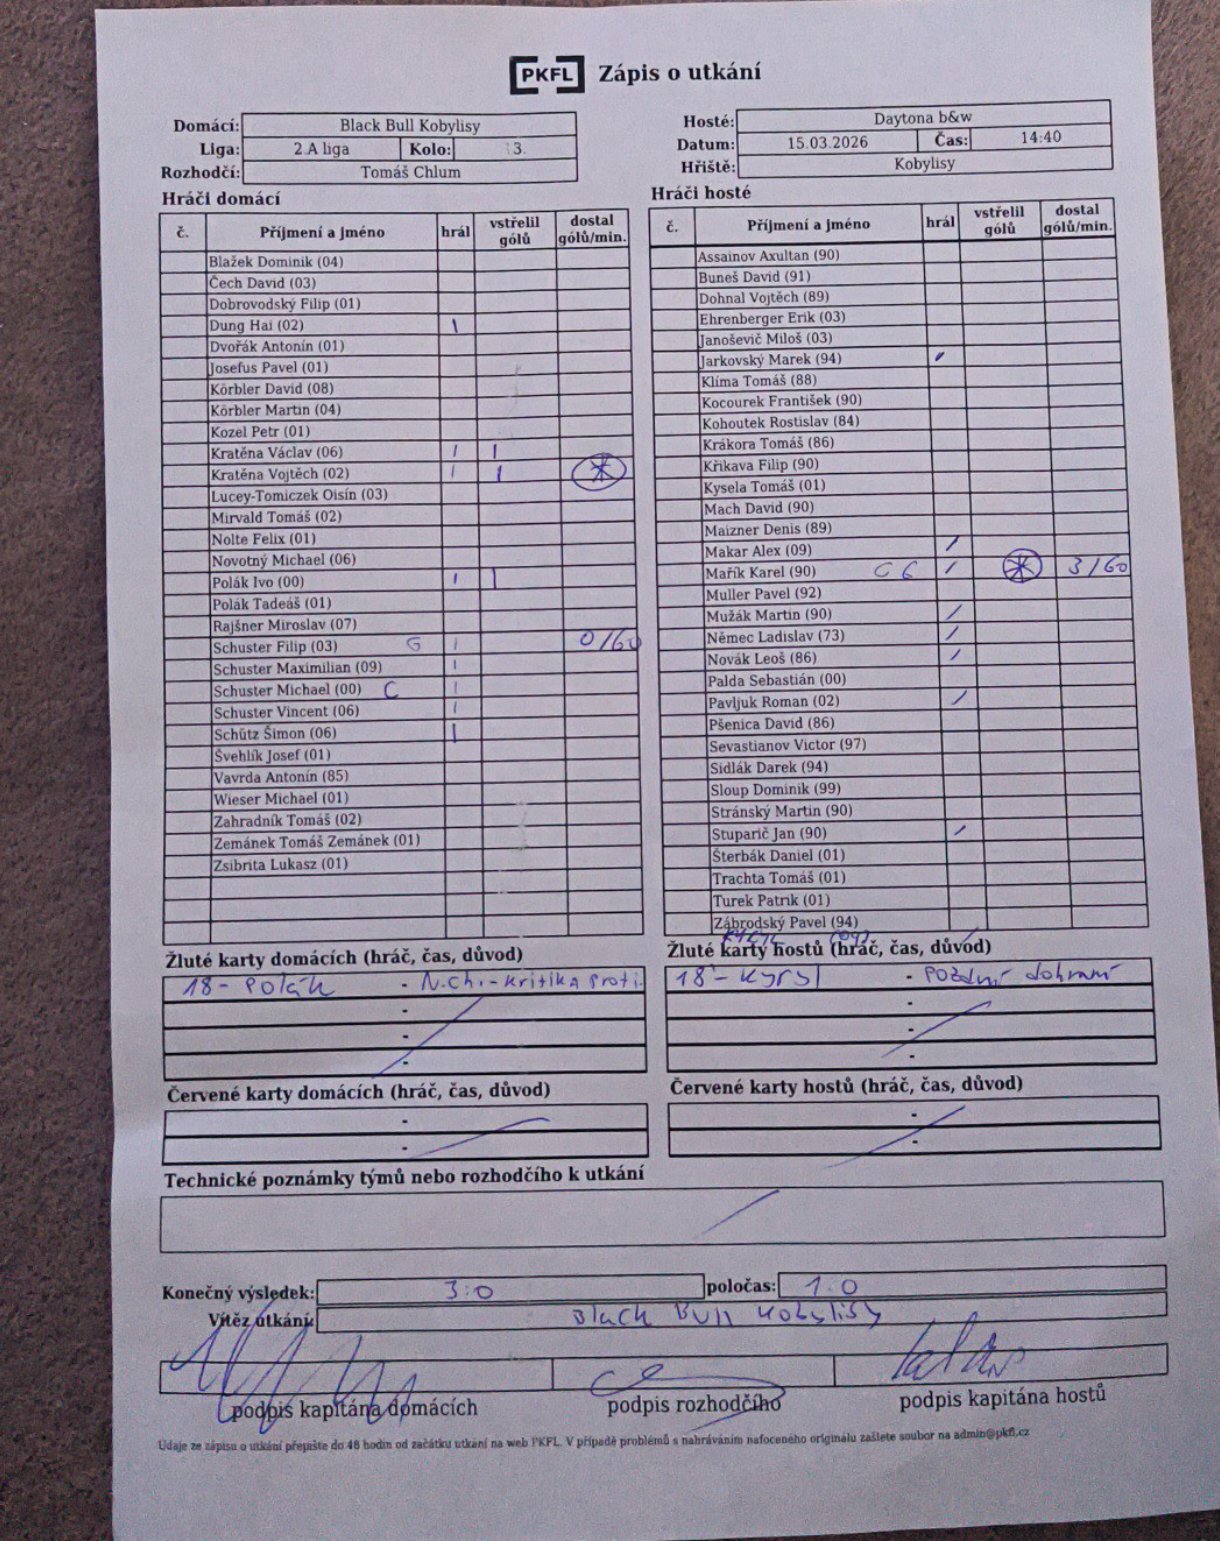 PKFL Zápis o utkání
Domácí: Black Bull Kobylisy
Liga: 2.A liga Kolo: 13.
Rozhodčí: Tomáš Chlum
Hosté: Daytona b&w
Datum: 15.03.2026 Čas: 14:40
Hřiště: Kobylisy
Hráči domácí
č. Příjmení a jméno hrál vstřelil gólů dostal gólů/min.
Blažek Dominik (04)
Čech David (03)
Dobrovodský Filip (01)
Dung Hai (02) 1
Dvořák Antonín (01)
Josefus Pavel (01)
Körbler David (08)
Körbler Martin (04)
Kozel Petr (01)
Kratěna Václav (06) 1 1
Kratěna Vojtěch (02) 1 1 *
Lucey-Tomiczek Oisín (03)
Mirvald Tomáš (02)
Nolte Felix (01)
Novotný Michael (06)
Polák Ivo (00) 1 1
Polák Tadeáš (01)
Rajšner Miroslav (07)
Schuster Filip (03) G 1 0/60
Schuster Maximilian (09) 1
Schuster Michael (00) C 1
Schuster Vincent (06) 1
Schütz Šimon (06) 1
Švehlík Josef (01)
Vavrda Antonín (85)
Wieser Michael (01)
Zahradník Tomáš (02)
Zemánek Tomáš Zemánek (01)
Zsibrita Lukasz (01)
Hráči hosté
č. Příjmení a jméno hrál vstřelil gólů dostal gólů/min.
Assainov Axultan (90)
Buneš David (91)
Dohnal Vojtěch (89)
Ehrenberger Erik (03)
Janoševič Miloš (03)
Jarkovský Marek (94) /
Klíma Tomáš (88)
Kocourek František (90)
Kohoutek Rostislav (84)
Krákora Tomáš (86)
Křikava Filip (90)
Kysela Tomáš (01)
Mach David (90)
Maizner Denis (89)
Makar Alex (09) /
Mařík Karel (90) C G / * 3/60
Muller Pavel (92)
Mužák Martin (90) /
Němec Ladislav (73) /
Novák Leoš (86) /
Palda Sebastián (00)
Pavljuk Roman (02) /
Pšenica David (86)
Sevastianov Victor (97)
Sidlák Darek (94)
Sloup Dominik (99)
Stránský Martin (90)
Stuparič Jan (90) /
Šterbák Daniel (01)
Trachta Tomáš (01)
Turek Patrik (01)
Zábrodský Pavel (94)
Žluté karty domácích (hráč, čas, důvod)
18 - Polák - N.ch. - kritika proti.
-
-
-
Žluté karty hostů (hráč, čas, důvod)
18 - Kyryl - Pozdní dohraní
-
-
-
Červené karty domácích (hráč, čas, důvod)
-
-
Červené karty hostů (hráč, čas, důvod)
-
-
Technické poznámky týmů nebo rozhodčího k utkání
Konečný výsledek: 3:0 poločas: 1:0
Vítěz utkání: Black Bull Kobylisy
podpis kapitána domácích podpis rozhodčího podpis kapitána hostů
Údaje ze zápisu o utkání přepište do 48 hodin od začátku utkání na web PKFL. V případě problémů s nahráváním nafoceného originálu zašlete soubor na admin@pkfl.cz